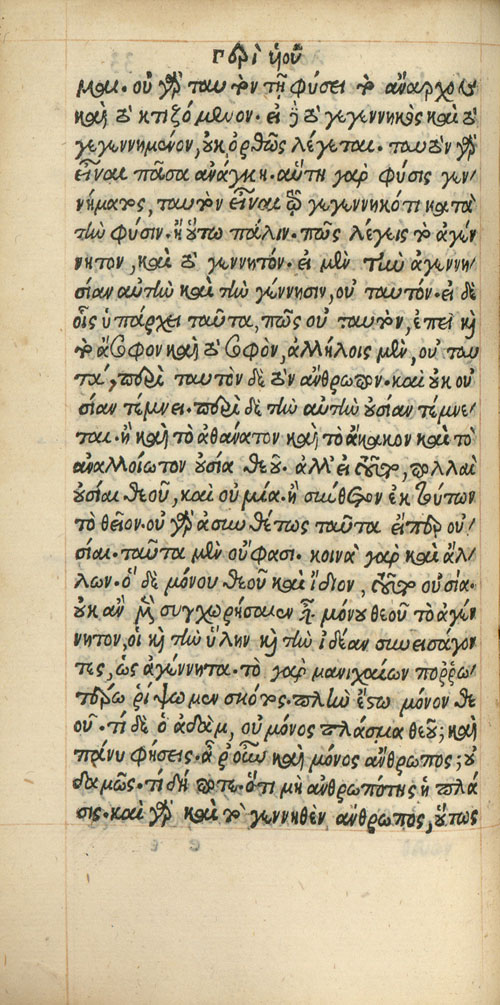 περὶ υἱοῦ
μαι. οὐ γὰρ ταυτὸν τῇ φύσει τὸ ἄναρχον
καὶ τὸ κτιζόμενον. εἰ δὲ τὸ γεγεννηκὸς καὶ τὸ
γεγεννημένον, οὐκ ὀρθῶς λέγεται. ταυτὸν γὰρ
εἶναι πᾶσα ἀνάγκη. αὕτη γὰρ φύσις γεν/
νήματος, ταυτὸν εἶναι τῷ γεγεννηκότι κατὰ
τὴν φύσιν. ἢ οὕτω πάλιν. πῶς λέγεις τὸ ἀγέν
νητον, καὶ τὸ γεννητόν. εἰ μὲν τὴν ἀγεννη/
σίαν αὐτὴν καὶ τὴν γέννησιν, οὐ ταυτόν. εἰ δὲ
οἷς ὑπάρχει ταῦτα, πῶς οὐ ταυτὸν, ἐπεὶ καὶ
τὸ ἄσοφον καὶ τὸ σοφὸν, ἀλλήλοις μὲν, οὐ ταυ
τά, περὶ ταυτὸν δὲ τὸν ἄνθρωπον. καὶ οὐκ οὐ
σίαν τέμνει. περὶ δὲ τὴν αὐτὴν οὐσίαν τέμνε
ται. ἢ καὶ τὸ ἀθάνατον καὶ τὸ ἄκακον καὶ τὸ
ἀναλλοίωτον οὐσία θεοῦ. ἀλλ' εἰ τοῦτο, πολλαὶ
οὐσίαι θεοῦ, καὶ οὐ μία. ἢ σύνθετον ἐκ τούτων
τὸ θεῖον. οὐ γὰρ ἀσυνθέτως ταῦτα εἴπερ οὐ/
σίαι. ταῦτα μὲν οὔ φασι. κοινὰ γὰρ καὶ ἄλ/
λων. ὃ δὲ μόνου θεοῦ καὶ ἴδιον, τοῦτο οὐσία.
οὐκ ἂν μὲν συγχωρήσαιεν εἶναι μόνου θεοῦ τὸ ἀγέν
νητον, οἱ καὶ τὴν ὕλην καὶ τὴν ἰδέαν συνεισάγον
τες, ὡς ἀγέννητα. τὸ γὰρ μανιχαίων πορρω/
τέρω ῥίψωμεν σκότος. πλὴν ἔστω μόνου θε
οῦ. τί δὲ ὁ ἀδάμ, οὐ μόνος πλάσμα θεοῦ; καὶ
πάνυ φήσεις. ἆρ' οὖν καὶ μόνος ἄνθρωπος; οὐ
δαμῶς. τί δή ποτε. ὅτι μὴ ἀνθρωπότης ἡ πλά
σις. καὶ γὰρ καὶ τὸ γεννηθὲν ἄνθρωπος, οὕτως